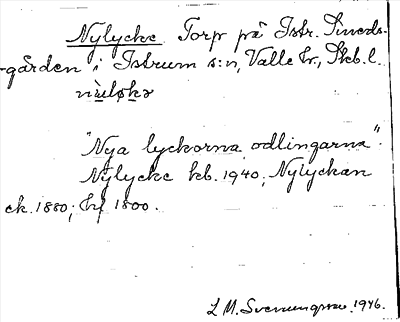 Nylycke Torp på Istr. Sineds-
-gården i Istrum s:n, Valle hr., Skb.l.
nỳlỳkə
"Nya lyckorna, odlingarna".
Nylycke kb. 1940; Nylyckan
ek. 1880; hf 1800.
L.M. Svenungsson. 1946.